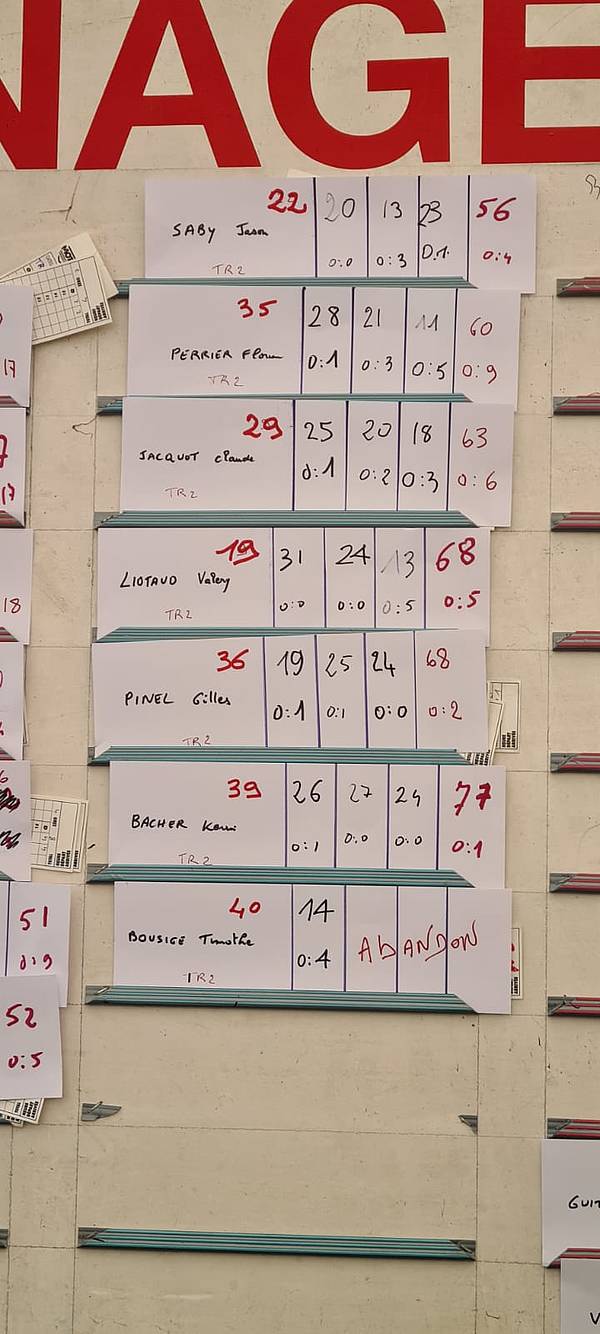 NAGE
22 20 13 23 56
SABY Jason
0:0 0:3 0:1 0:4
TR2
35 28 21 11 60
PERRIER Florian
0:1 0:3 0:5 0:9
TR2
29 25 20 18 63
JACQUOT Claude
0:1 0:2 0:3 0:6
TR2
19 31 24 13 68
LIOTAUD Valery
0:0 0:0 0:5 0:5
TR2
36 19 25 24 68
PINEL Gilles
0:1 0:1 0:0 0:2
TR2
39 26 27 24 77
BACHER
0:1 0:0 0:0 0:1
TR2
40 14
BOUSIGE Timothe
0:4 ABANDON
TR2
17
17
18
51
0:9
52
0:5
GUIT
V